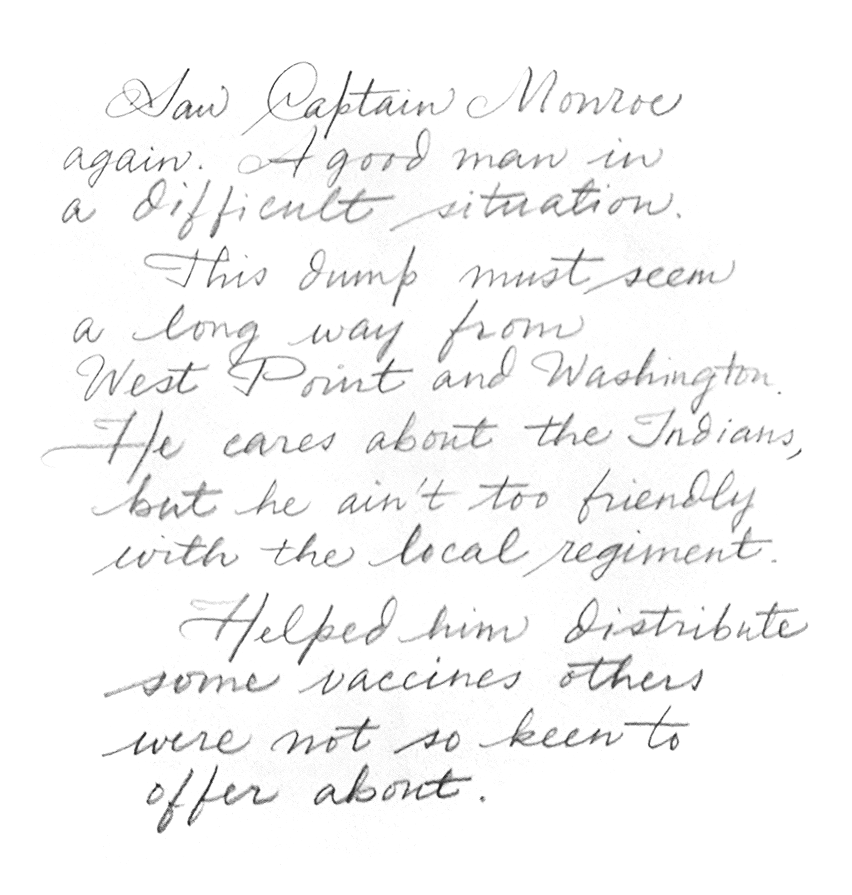 Saw Captain Monroe
again. A good man in
a difficult situation.
This dump must seem
a long way from
West Point and Washington.
He cares about the Indians,
but he ain't too friendly
with the local regiment.
Helped him distribute
some vaccines others
were not so keen to
offer about.